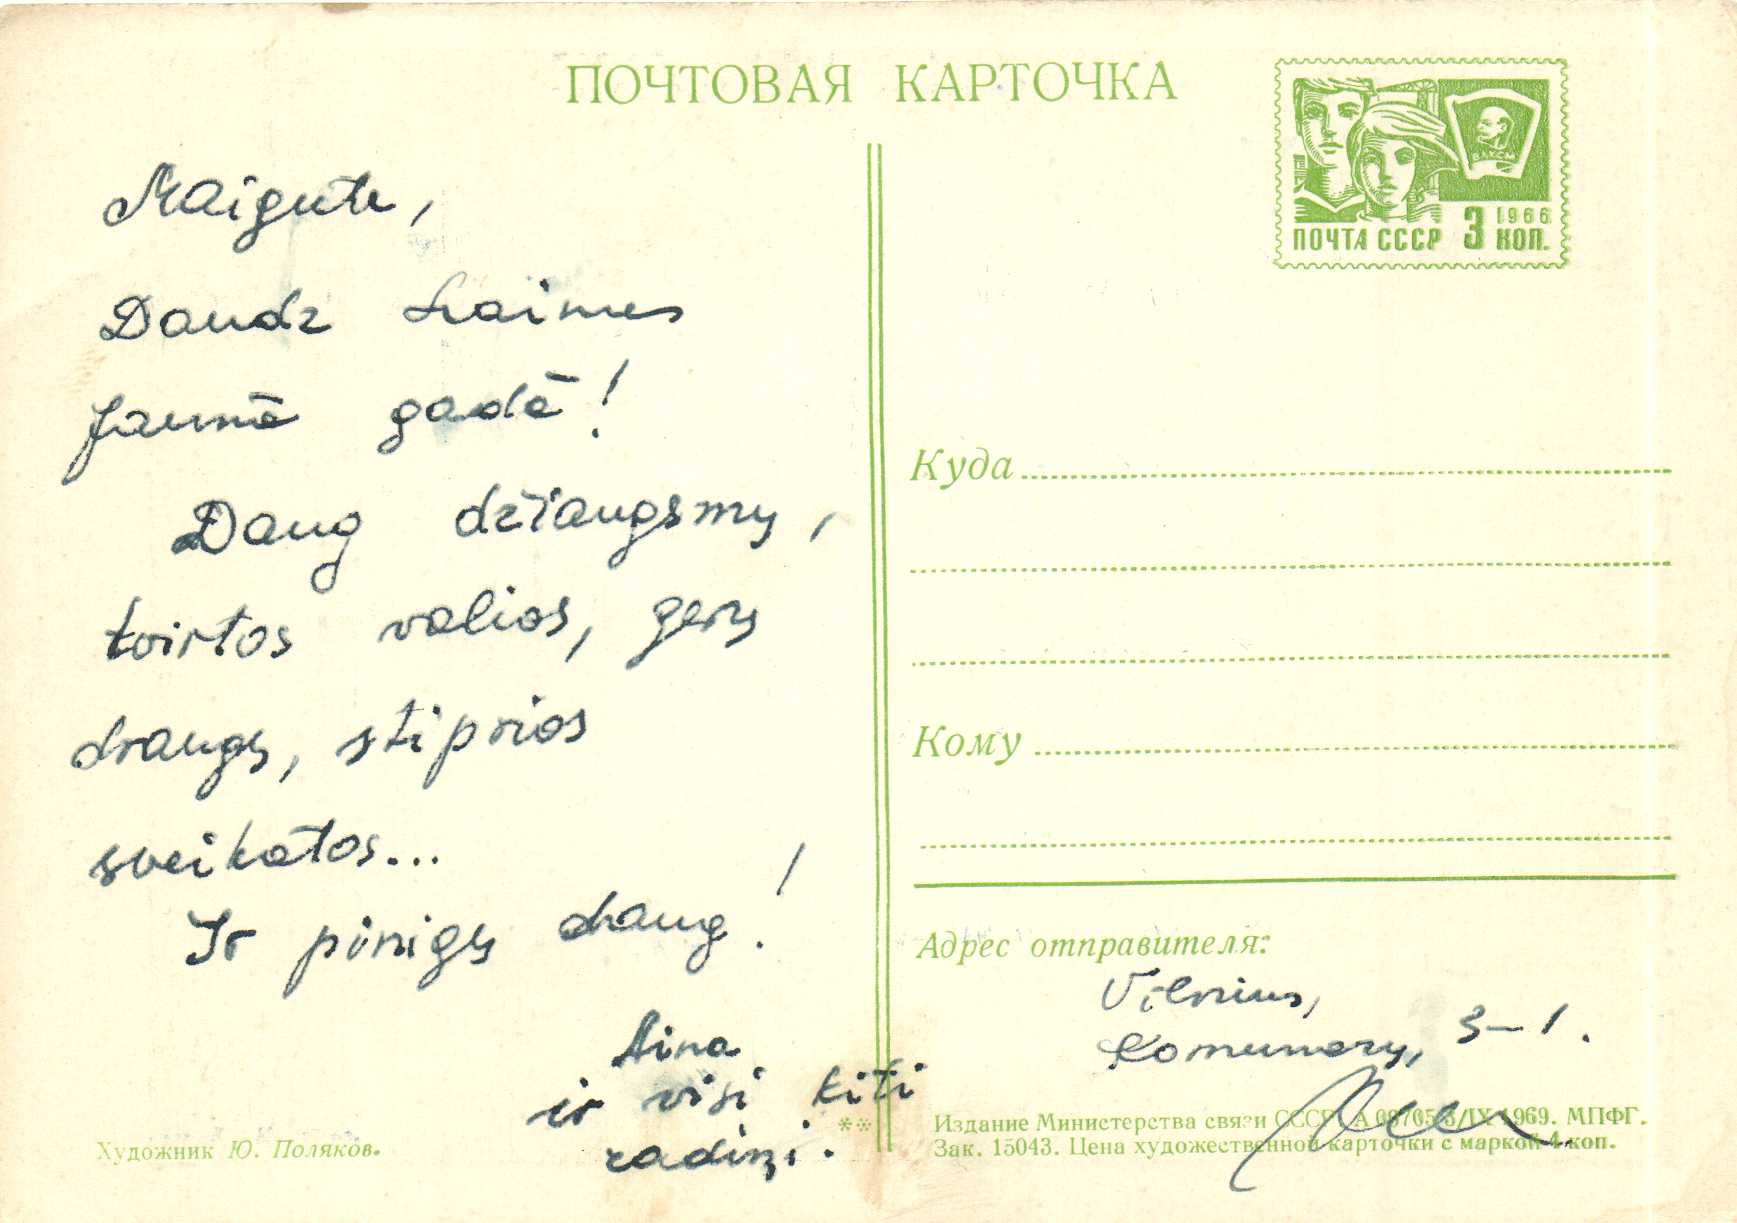 ПОЧТОВАЯ КАРТОЧКА
ВЛКСМ
1966
ПОЧТА СССР 3 КОП.
Maigute,
Daudz Laimes
Jaunā gadā!
Daug džiaugsmų,
tvirtos valios, gerų
draugų, stiprios
sveikatos...
Ir pinigų draug!
Aina
ir visi kiti
radiņi.
Художник Ю. Поляков.
Куда
Кому
Адрес отправителя:
Vilnius,
Komunarų, 3-1.
Издание Министерства связи СССР. А 08705 3/IX 1969. МПФГ.
Зак. 15043. Цена художественной карточки с маркой 4 коп.